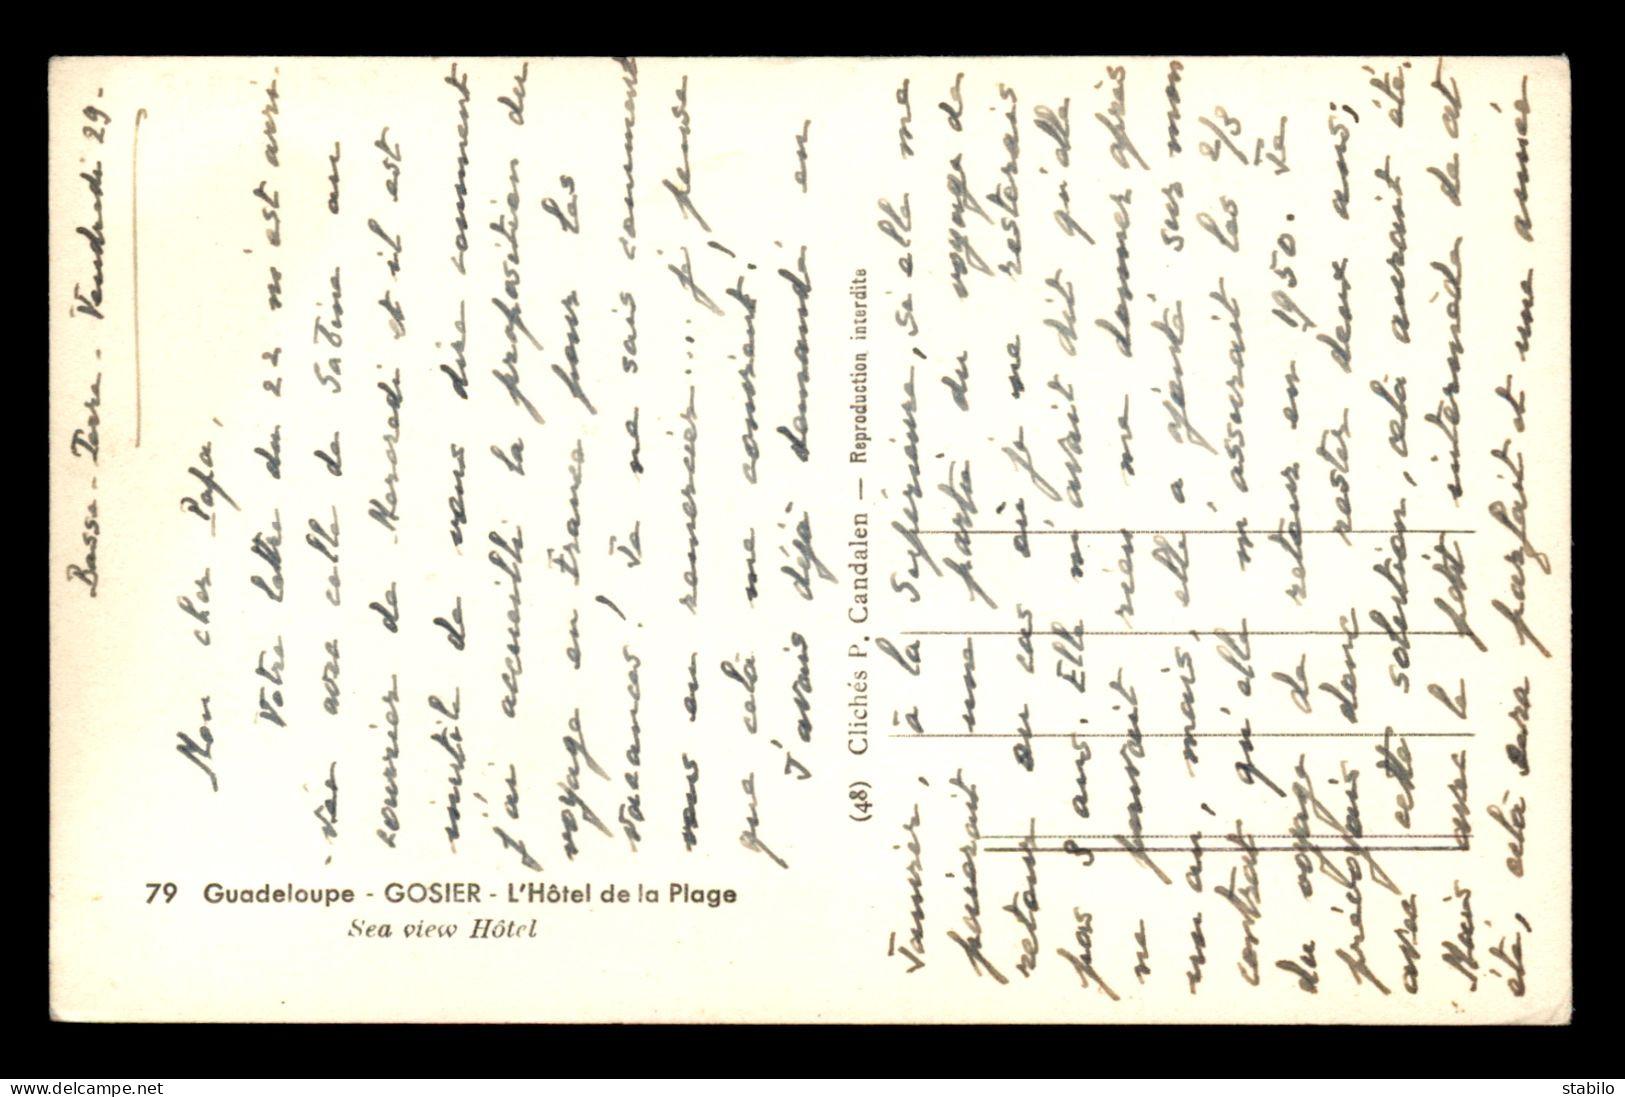 Basse-Terre - Vendredi 29 -
Mon cher Papa,
Votre lettre du 22 m'est arri-
-vée avec celle de Sabine au
courrier de Mercredi et il est
inutile de vous dire comment
j'ai accueilli la proposition du
voyage en France pour les
vacances! Je ne sais comment
vous en remercier.... j' pense
que celà me convient!
J'avais déjà demandé en
79 Guadeloupe - GOSIER - L'Hôtel de la Plage
Sea view Hôtel
(48) Clichés P. Candalen — Reproduction interdite
Janvier, à la Supérieure, si elle me
paierait une partie du voyage de
retour au cas où je ne resterais
pas 3 ans. Elle m'avait dit qu'elle
ne pouvait rien me donner après
un an, mais, elle a ajouté sur mon
contrat qu'elle m'assurait les 2/3
du voyage de retour en 1950. Je
prévoyais donc rester deux ans;
avec cette solution, celà aurait été.
Mais avec le petit intermède de cet
été, celà sera parfait et une année